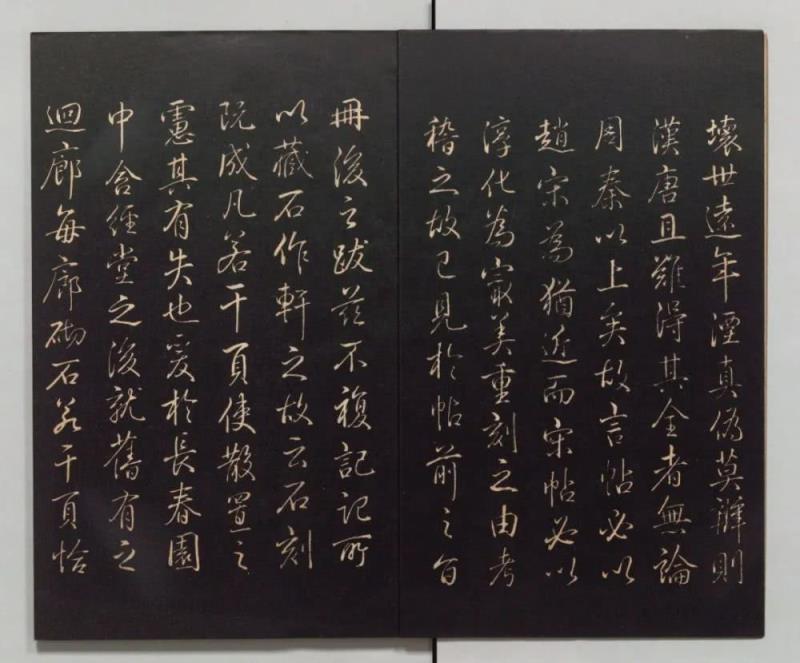 壞世遠年湮真偽莫辨則
漢唐且難得其全者無論
周秦以上矣故言帖必以
趙宋為猶近而宋帖必以
淳化為最美重刻之由考
稽之故已見於帖前之旨
冊後之跋茲不複記記所
以藏石作軒之故云石刻
既成凡若干頁使散置之
慮其有失也爰於長春園
中含經堂之後就舊有之
迴廊每廊砌石若干頁恰